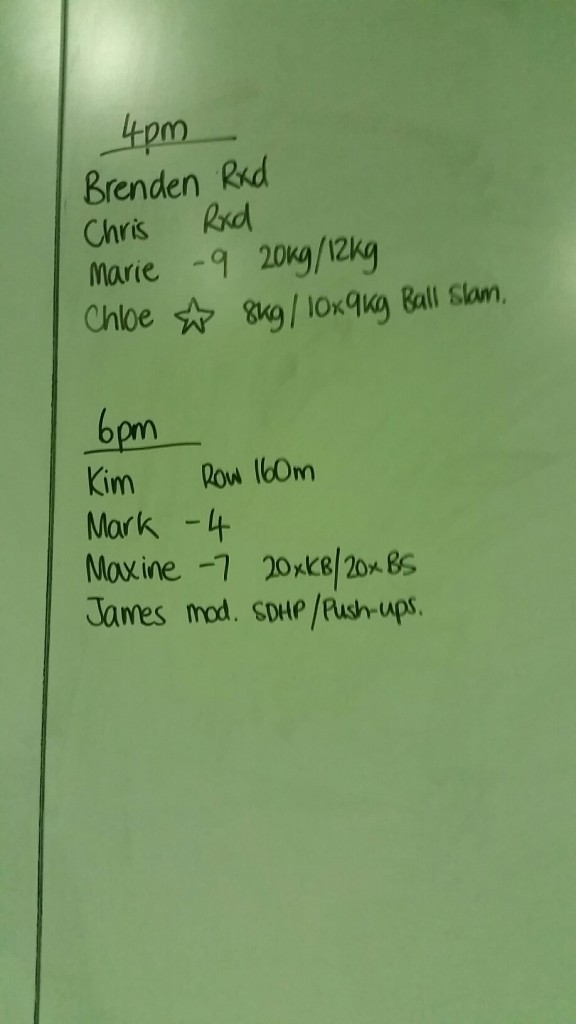 4pm
Brenden Rxd
Chris Rxd
Marie -9 20kg/12kg
Chloe ☆ 8kg/10x9kg Ball Slam.
6pm
Kim Row 160m
Mark -4
Maxine -7 20xKB/20xBS
James mod. SDHP/Push-ups.